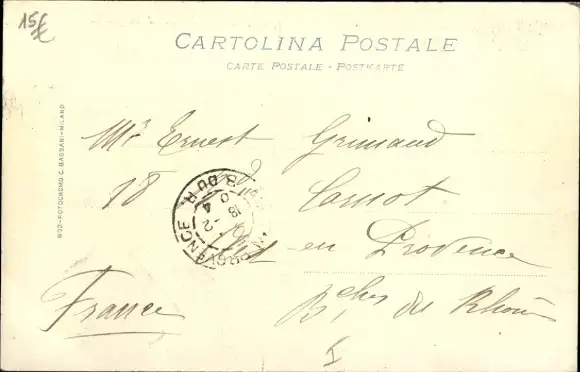 15€
CARTOLINA POSTALE
CARTE POSTALE - POSTKARTE
802-FOTOCROMO C. BASSANI-MILANO
Mr Ernest Grimaud
18 Carnot
en Provence
Bches du Rhône
France
I